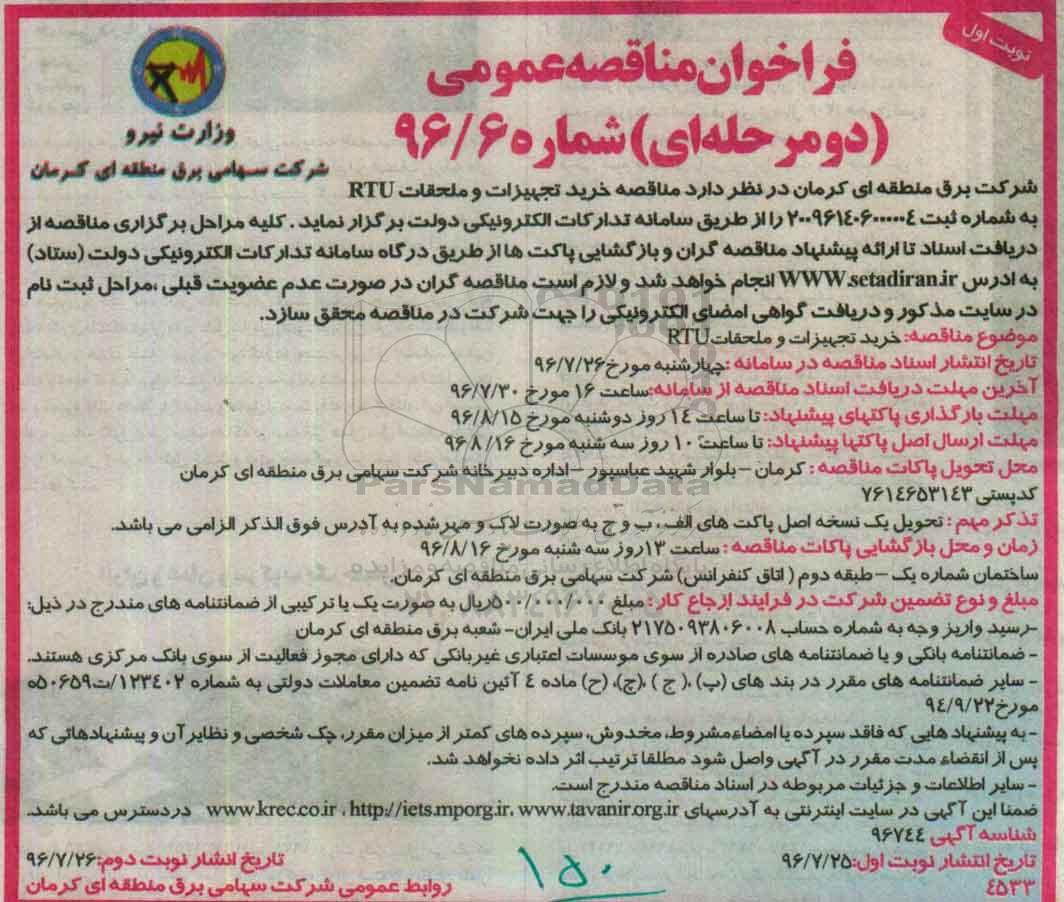 نوبت اول
فراخوان مناقصه عمومی
(دو مرحله‌ای) شماره ۹۶/۶
وزارت نیرو
شرکت سهامی برق منطقه ای کرمان
شرکت برق منطقه ای کرمان در نظر دارد مناقصه خرید تجهیزات و ملحقات RTU
به شماره ثبت ۲۰۰۹۶۱۴۰۶۰۰۰۰۰۴ را از طریق سامانه تدارکات الکترونیکی دولت برگزار نماید. کلیه مراحل برگزاری مناقصه از
دریافت اسناد تا ارائه پیشنهاد مناقصه گران و بازگشایی پاکت ها از طریق درگاه سامانه تدارکات الکترونیکی دولت (ستاد)
به ادرس WWW.setadiran.ir انجام خواهد شد و لازم است مناقصه گران در صورت عدم عضویت قبلی ،مراحل ثبت نام
در سایت مذکور و دریافت گواهی امضای الکترونیکی را جهت شرکت در مناقصه محقق سازد.
موضوع مناقصه: خرید تجهیزات و ملحقات RTU
تاریخ انتشار اسناد مناقصه در سامانه :چهارشنبه مورخ ۹۶/۷/۲۶
آخرین مهلت دریافت اسناد مناقصه از سامانه:ساعت ۱۶ مورخ ۹۶/۷/۳۰
مهلت بارگذاری پاکتهای پیشنهاد: تا ساعت ۱۴ روز دوشنبه مورخ ۹۶/۸/۱۵
مهلت ارسال اصل پاکتها پیشنهاد: تا ساعت ۱۰ روز سه شنبه مورخ ۹۶/۸/۱۶
محل تحویل پاکات مناقصه : کرمان – بلوار شهید عباسپور – اداره دبیرخانه شرکت سهامی برق منطقه ای کرمان
کدپستی ۷۶۱۴۶۵۳۱۴۳
ParsNamadData
تذکر مهم : تحویل یک نسخه اصل پاکت های الف ، ب و ج به صورت لاک و مهر شده به آدرس فوق الذکر الزامی می باشد.
زمان و محل بازگشایی پاکات مناقصه : ساعت ۱۳روز سه شنبه مورخ ۹۶/۸/۱۶
ساختمان شماره یک – طبقه دوم ( اتاق کنفرانس) شرکت سهامی برق منطقه ای کرمان.
مبلغ و نوع تضمین شرکت در فرایند ارجاع کار : مبلغ ۵۰۰/۰۰۰/۰۰۰ریال به صورت یک یا ترکیبی از ضمانتنامه های مندرج در ذیل:
-رسید واریز وجه به شماره حساب ۲۱۷۵۰۹۳۸۰۶۰۰۸ بانک ملی ایران- شعبه برق منطقه ای کرمان
- ضمانتنامه بانکی و یا ضمانتنامه های صادره از سوی موسسات اعتباری غیربانکی که دارای مجوز فعالیت از سوی بانک مرکزی هستند.
- سایر ضمانتنامه های مقرر در بند های (پ) ،( ج ) ،(چ)، (ح) ماده ۴ آئین نامه تضمین معاملات دولتی به شماره ۱۲۳۴۰۲/ت۵۰۶۵۹ه
مورخ۹۴/۹/۲۲
- به پیشنهاد هایی که فاقد سپرده یا امضاءمشروط، مخدوش، سپرده های کمتر از میزان مقرر، چک شخصی و نظایر آن و پیشنهادهائی که
پس از انقضاء مدت مقرر در آگهی واصل شود مطلقا ترتیب اثر داده نخواهد شد.
- سایر اطلاعات و جزئیات مربوطه در اسناد مناقصه مندرج است.
ضمنا این آگهی در سایت اینترنتی به آدرسهای www.krec.co.ir ، http://iets.mporg.ir، www.tavanir.org.ir دردسترس می باشد.
شناسه آگهی ۹۶۷۴۴
تاریخ انتشار نوبت اول:۹۶/۷/۲۵
تاریخ انشار نوبت دوم:۹۶/۷/۲۶
۴۵۳۳
روابط عمومی شرکت سهامی برق منطقه ای کرمان
۱۵۰